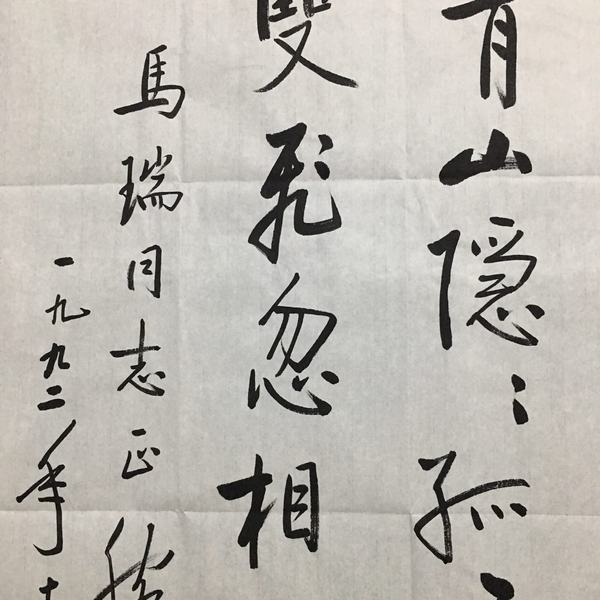 青山隱〻孤
雙飛忽相
馬瑞同志正
一九九二年十